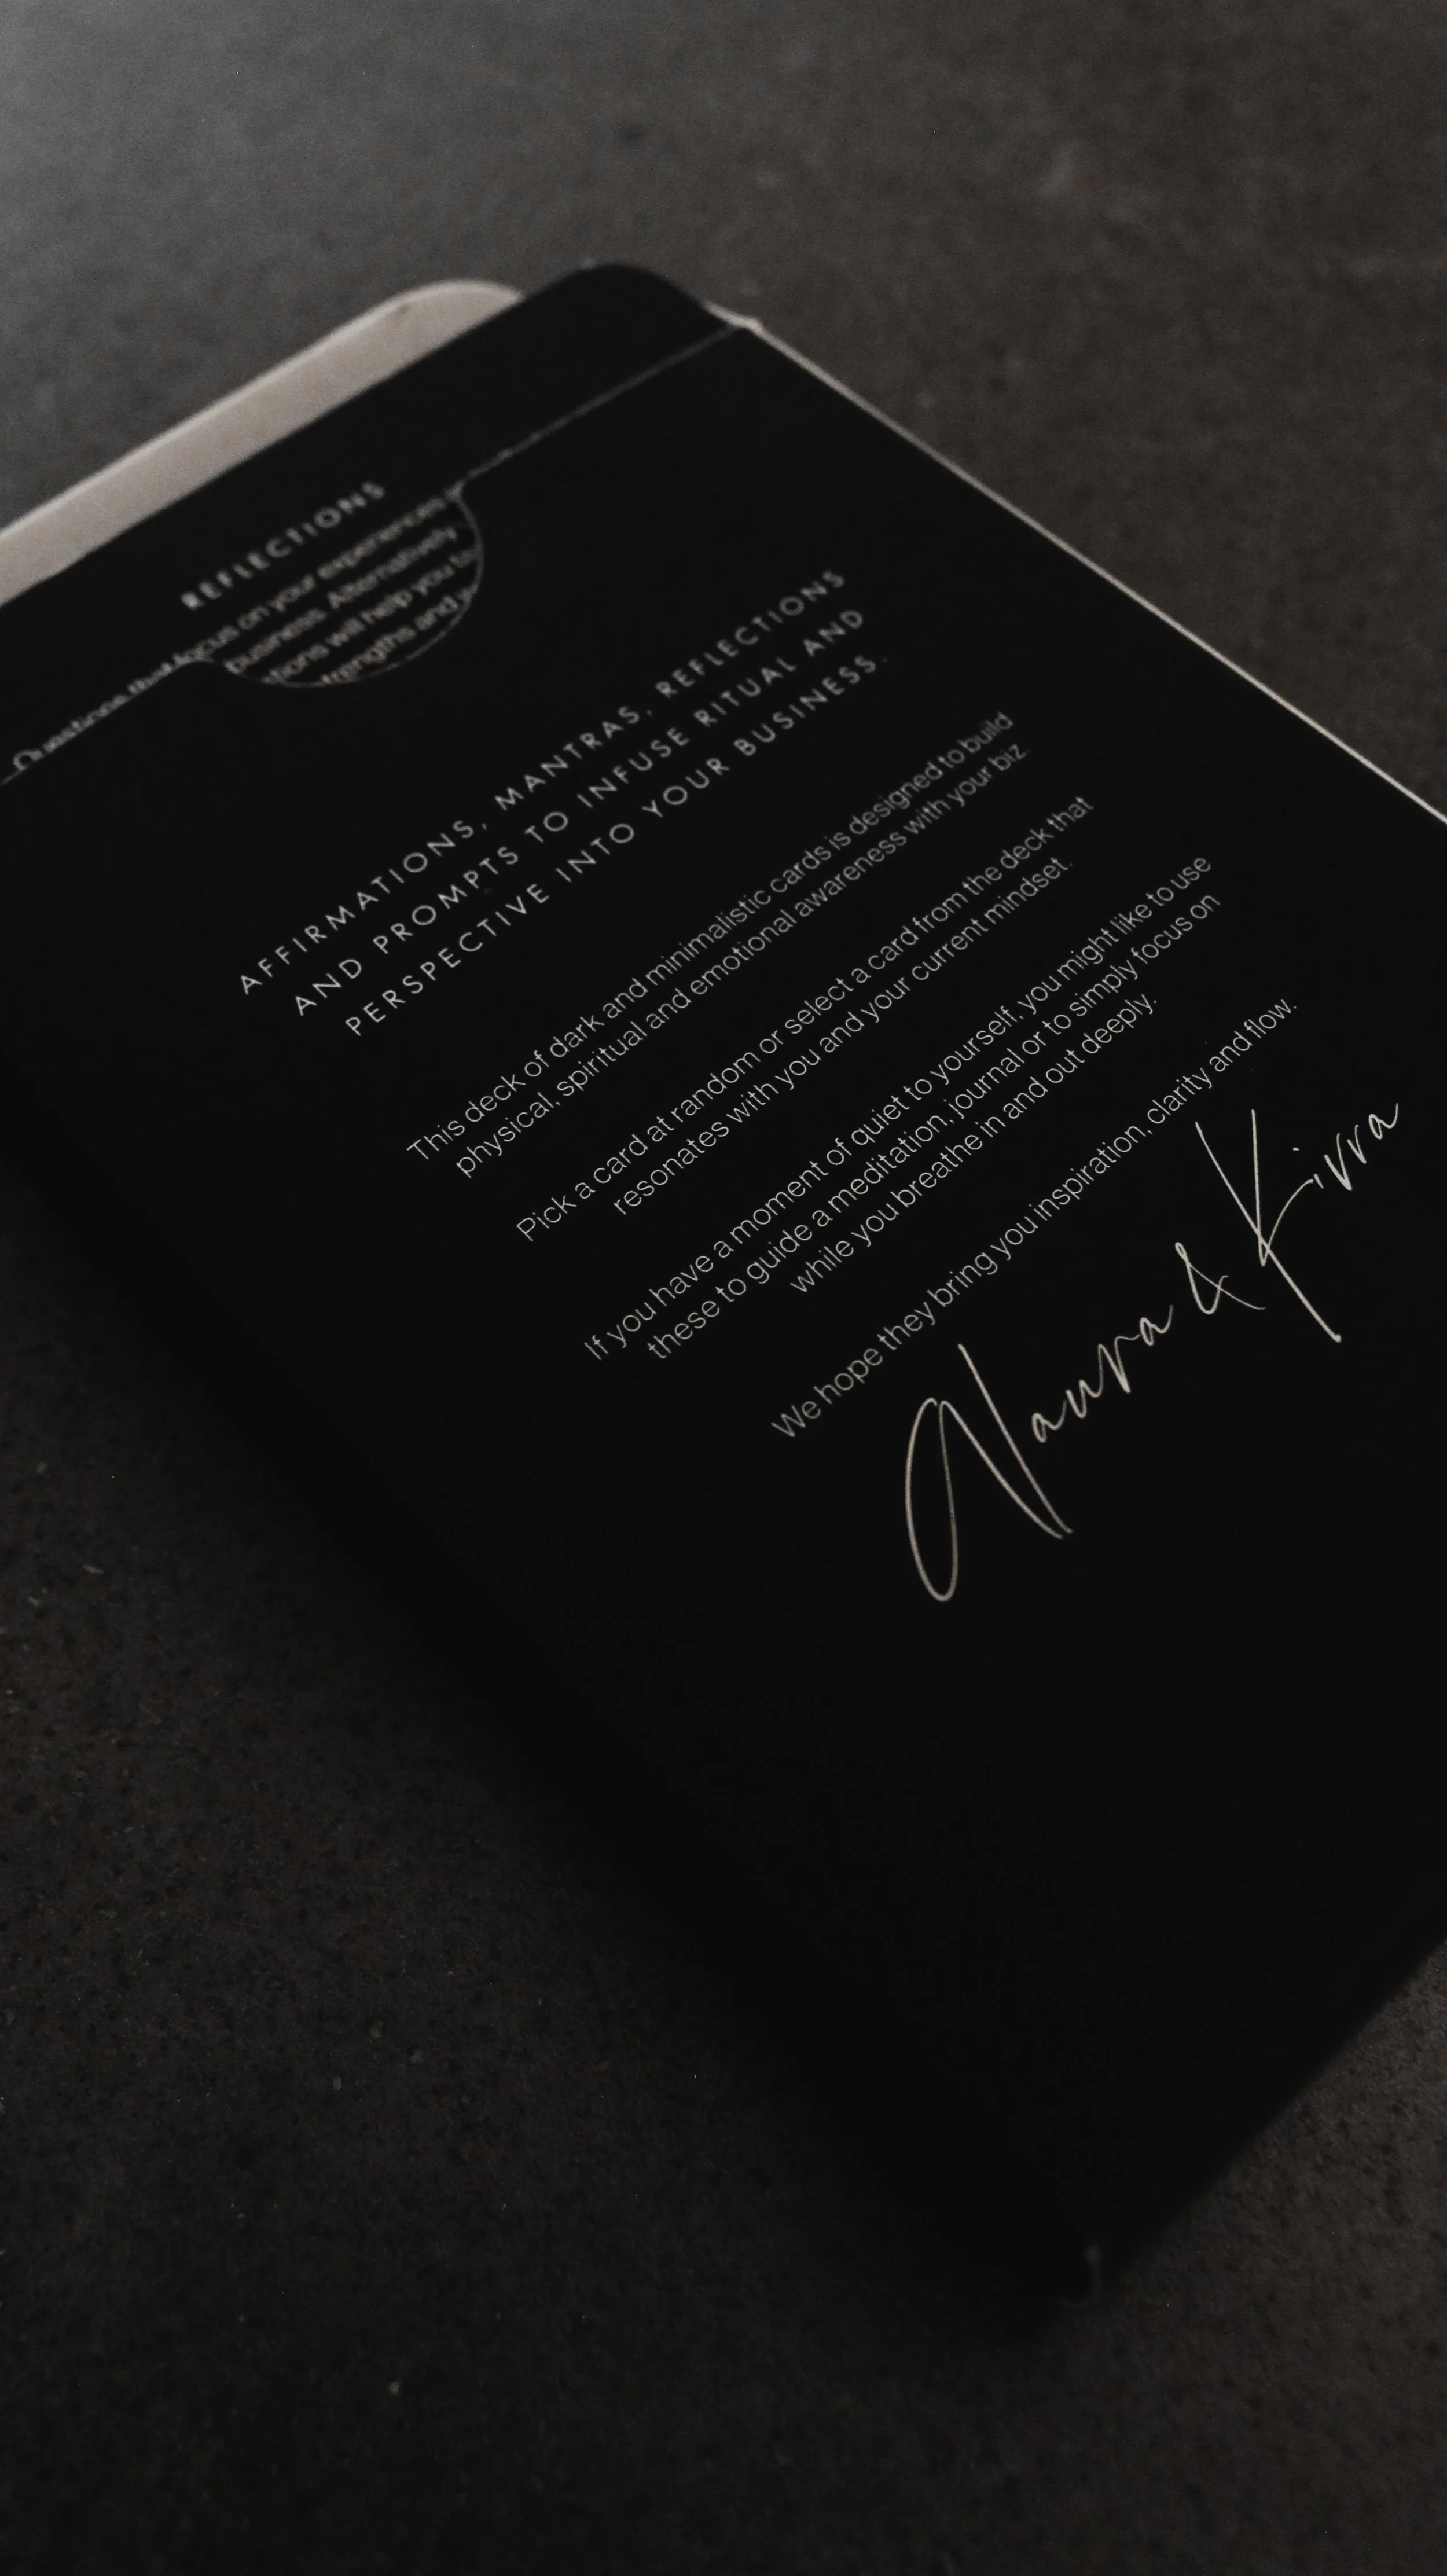 REFLECTIONS
Questions that focus on your experiences
business. Alternatively
tions will help you to
trengths and
AFFIRMATIONS, MANTRAS, REFLECTIONS
AND PROMPTS TO INFUSE RITUAL AND
PERSPECTIVE INTO YOUR BUSINESS.
This deck of dark and minimalistic cards is designed to build
physical, spiritual and emotional awareness with your biz.
Pick a card at random or select a card from the deck that
resonates with you and your current mindset.
If you have a moment of quiet to yourself, you might like to use
these to guide a meditation, journal or to simply focus on
while you breathe in and out deeply.
We hope they bring you inspiration, clarity and flow.
Naura & Kirra